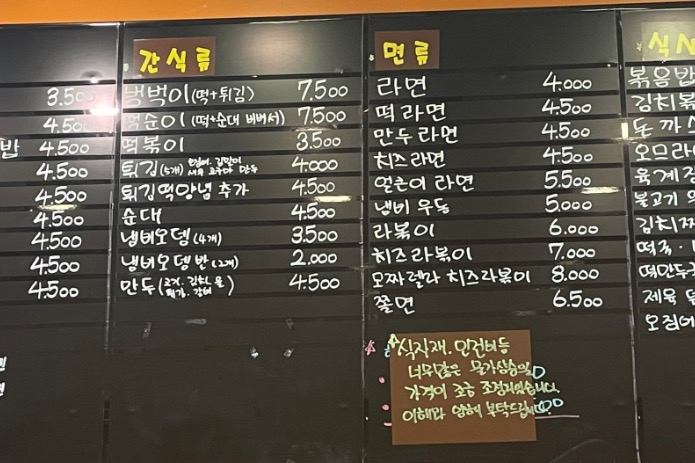 3.500
4.500
밥 4.500
4.500
4.500
4.500
4.500
4.500
4.500
간식류
범벅이(떡+튀김) 7.500
떡순이(떡+순대 버버서) 7.500
떡볶이 3.500
튀김(5개) 김말이 새우 고구마 만두 4.000
튀김떡양념 추가 4.500
순대 4.500
냄비오뎅(4개) 3.500
냄비오뎅반(2개) 2.000
만두(고기.김치.물 튀김.갈비) 4.500
면류
라면 4.000
떡라면 4.500
만두라면 4.500
치즈라면 4.500
얼큰이 라면 5.500
냄비 우동 5.000
라볶이 6.000
치즈라볶이 7.000
모짜렐라 치즈라볶이 8.000
쫄면 6.500
식자재.인건비등
너무많은 물가상승으로
가격이 조금 조정되었습니다.
이해와 양해 부탁드립니다.
식사
볶음밥
김치볶
돈까스
오므라
육계장
불고기
김치찌
떡국.
떡만두국
제육 덮
오징어